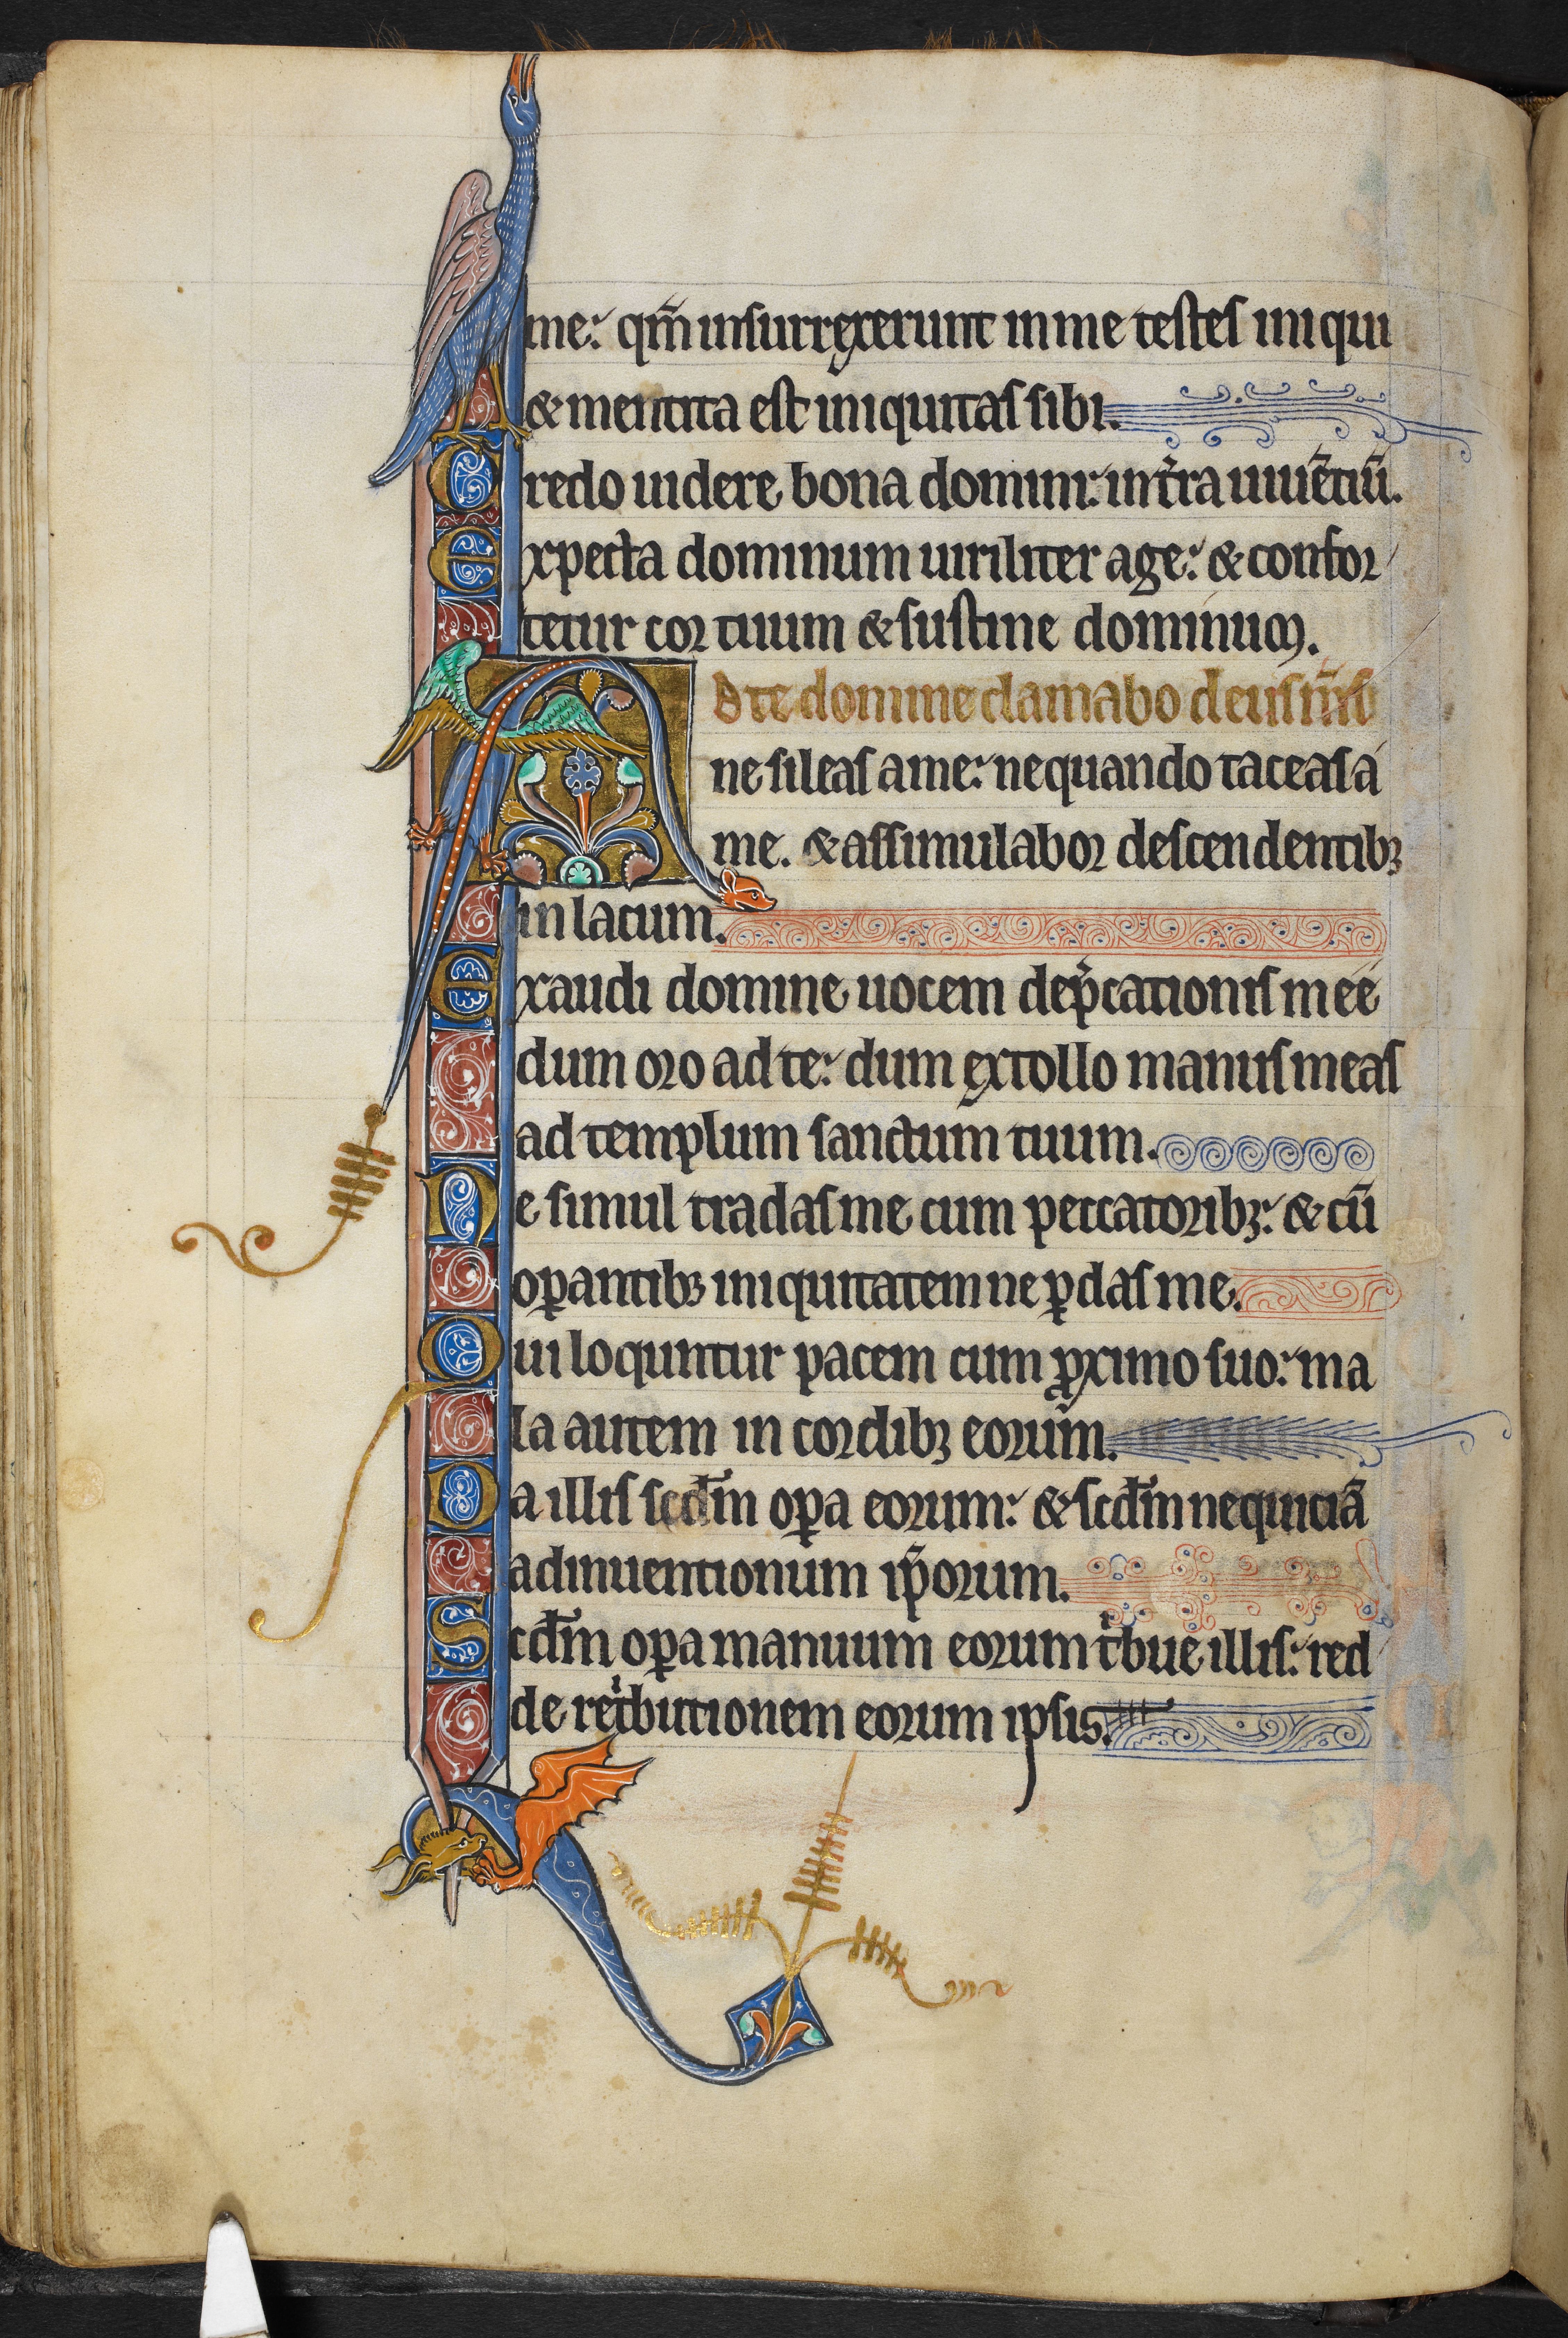 me: qm̄ insurrexerunt in me testes iniqui
& mentita est iniquitas sibi.
Credo uidere bona domini: in tr̾ra uiuētiū.
Expecta dominum uiriliter age: & confor
tetur cor tuum & sustine dominum.
AD te domine clamabo deus m̄s
ne sileas a me: nequando taceas a
me. & assimulabor descendentibꝫ
in lacum.
Exaudi domine uocem dep̾cationis meę
dum oro ad te: dum extollo manus meas
ad templum sanctum tuum.
Ne simul tradas me cum peccatoribꝫ: & cū
oꝑantibꝫ iniquitatem ne ꝑdas me.
Qui loquntur pacem cum ꝓximo suo: ma
la autem in cordibꝫ eorum.
Da illis scd̄m oꝑa eorum: & scd̄m nequiciā
adinuentionum ip̄orum.
Scd̄m oꝑa manuum eorum tͥbue illis: red
de retͥbutionem eorum ipsis.